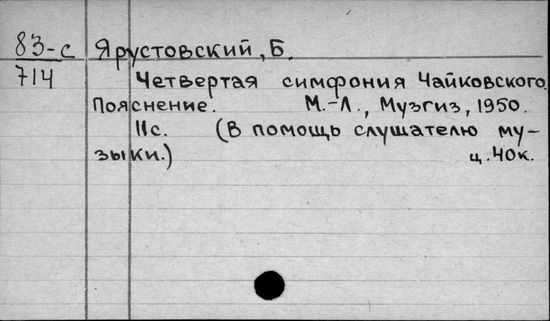 83-с Ярустовский, Б.
714 Четвертая симфония Чайковского.
Пояснение. М.-Л., Музгиз, 1950.
11с. (В помощь слушателю му-
зыки.) ц. 40к.